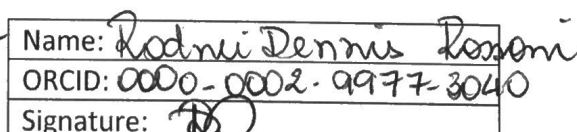 Name: Rodnei Dennis Rossoni
ORCID: 0000-0002-9977-3040
Signature: